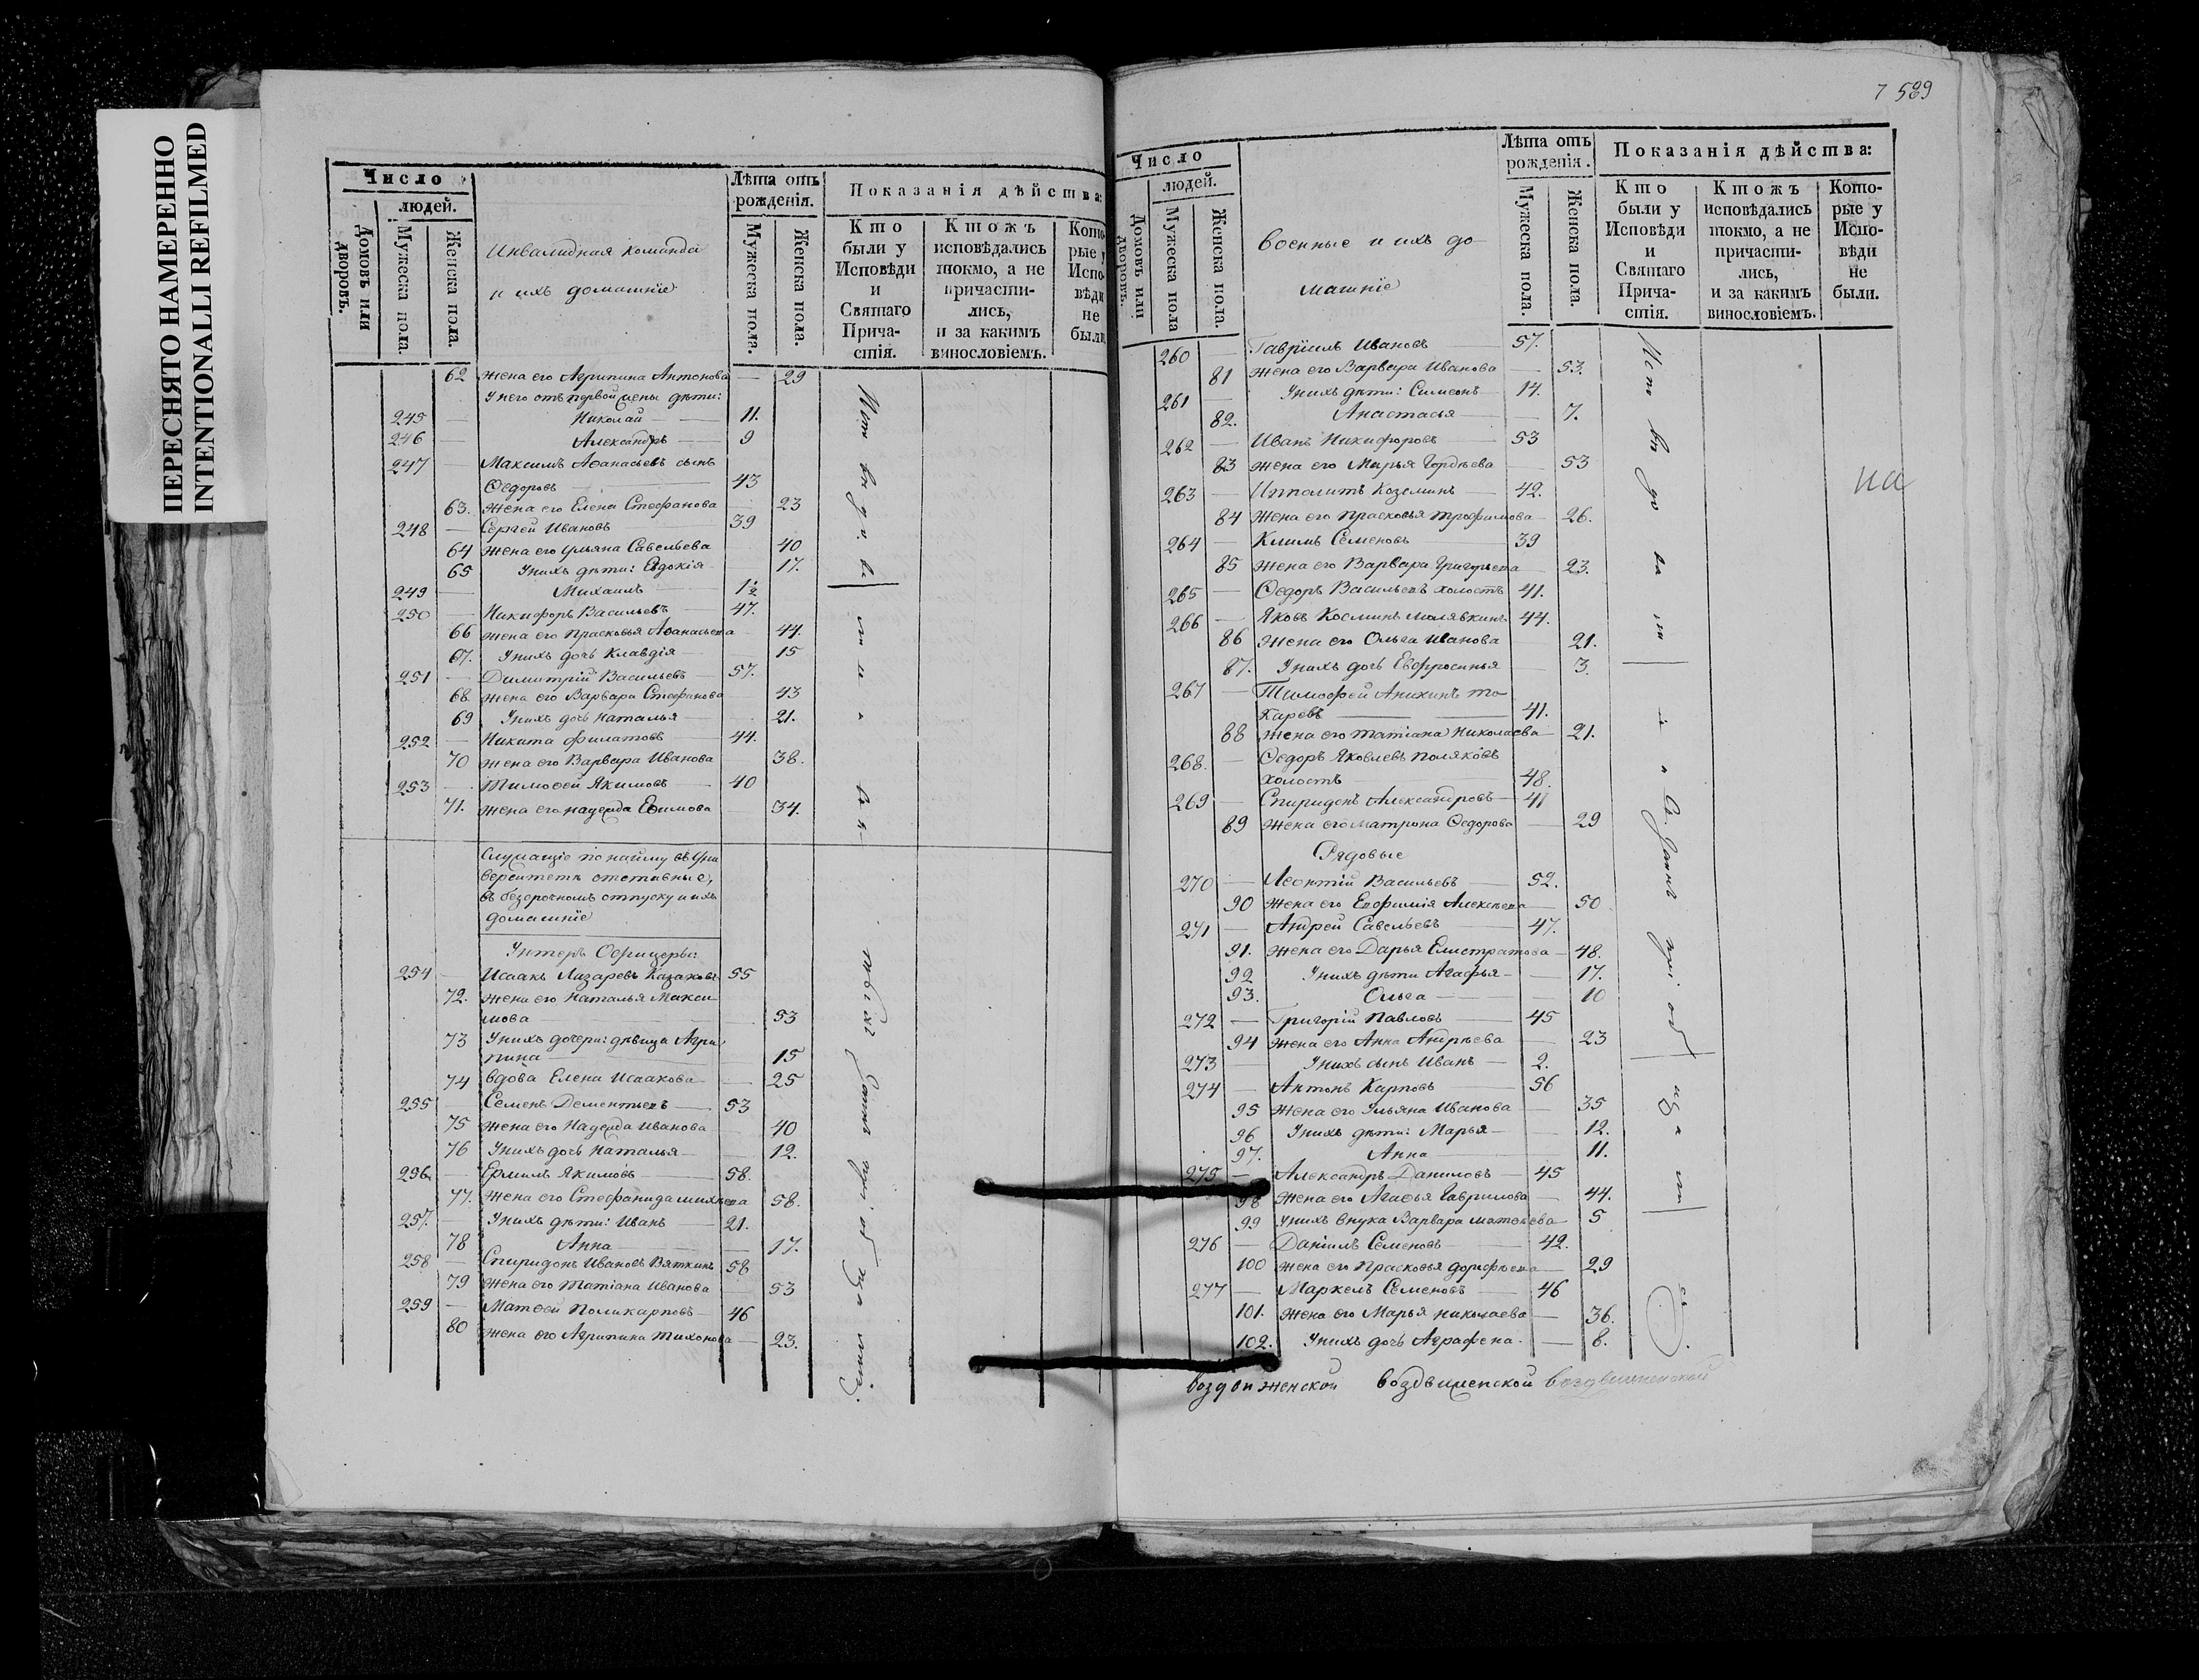 ПЕРЕСНЯТО НАМЕРЕННО
INTENTIONALLI REFILMED
Число
людей.
Домовъ или дворовъ.
Мужеска пола.
Женска пола.
Инвалидная команда
и ихъ домашніе
Лѣта отъ
рожденія.
Мужеска пола.
Женска пола.
Показанія дѣйства:
Кто
были у
Исповѣди
и
Святаго
Прича-
стія.
Ктожъ
исповѣдались
токмо, а не
причасти-
лись,
и за какимъ
винословіемъ.
Кото-
рые у
Испо-
вѣди
не
были
62 жена его Агрипина Антонова — 29
У него отъ первой жены дѣти:
245 — Николай — 11.
246 — Александръ — 9
247 — Максимъ Аѳанасьевъ сынъ
Ѳедоровъ — 43
63. жена его Елена Стефанова 23
248 — Сергей Ивановъ 39
64 жена его Ульяна Савельева 40
65 У нихъ дѣти: Евдокія — 17.
249 — Михаилъ — 1½
250 — Никифоръ Васильевъ — 47.
66 жена его Прасковья Аѳанасьева 44.
67. У нихъ дочь Клавдія — 15
251 — Димитрій Васильевъ — 57.
68 жена его Варвара Стефанова 43
69 У нихъ дочь Наталья — 21.
252 — Никита Филатовъ — 44.
70 жена его Варвара Иванова 38.
253 — Тимоѳей Якимовъ — 40
71. жена его Надежда Ефимова 34.
Служащіе по найму въ Уни
верситетѣ отставные,
въ безсрочномъ отпуску и ихъ
домашніе
Унтеръ Офицеры:
254 — Исаакъ Лазаревъ Казаковъ 55
72. жена его Наталья Макси
мова — 53
73 У нихъ дочери: дѣвица Агри
пина — 15
74 вдова Елена Исаакова — 25
255 — Семенъ Дементьевъ — 53
75 жена его Надежда Иванова 40
76 У нихъ дочь Наталья — 12.
256 — Ермилъ Якимовъ — 58.
77. жена его Стефанида 58.
257. — У нихъ дѣти: Иванъ — 21.
78 Анна — 17.
258 — Спиридонъ Ивановъ Вяткинъ 58
79 жена его Татіана Иванова 53
259 — Матѳей Поликарповъ — 46
80 жена его Агрипина Тихонова — 23.
7 589
Число
людей.
Домовъ или дворовъ.
Мужеска пола
Женска пола.
военные и ихъ до
машніе
Лѣта отъ
рожденія.
Мужеска пола.
Женска пола.
Показанія дѣйства:
Кто
были у
Исповѣди
и
Святаго
Прича-
стія.
Ктожъ
исповѣдались
токмо, а не
причасти-
лись,
и за какимъ
винословіемъ.
Кото-
рые у
Испо-
вѣди
не
были.
260 — Гавріилъ Ивановъ — 57.
81 жена его Варвара Иванова — 53.
261 — У нихъ дѣти: Симеонъ — 14.
82. Анастасья — 7.
262 — Иванъ Никифоровъ — 53
83 жена его Марья Гордѣева 53
263 — Ипполитъ Козминъ — 42.
84 жена его Прасковья Трофимова — 26.
264 — Климъ Семеновъ — 39
85 жена его Варвара Григорьева 23.
265 — Ѳедоръ Васильевъ холостъ 41.
266 — Яковъ Косминъ Малявкинъ 44.
86 жена его Ольга Иванова 21.
87. У нихъ дочь Евфросинья — 3.
267 — Тимофей Аникинъ То
каревъ — 41.
88 жена его Татіана Николаева — 21.
268. — Ѳедоръ Яковлевъ Поляковъ
холостъ — 48.
269 — Спиридонъ Александровъ — 41
89 жена его Матрона Ѳедорова — 29
Рядовые
270 — Леонтій Васильевъ — 52.
90 жена его Евфимія Алексѣева — 50
271 — Андрей Савельевъ — 47.
91. жена его Дарья Елистратова — 48.
92 У нихъ дѣти Агафья — 17.
93. Ольга — 10
272 — Григорій Павловъ — 45
94 жена его Анна Андрѣева — 23
273 — У нихъ сынъ Иванъ — 2.
274 — Антонъ Карповъ — 56
95 жена его Ульяна Иванова — 35
96 У нихъ дѣти: Марья — 12.
97. Анна — 11.
275 — Александръ Даниловъ — 45
98 жена его Агафья Гаврилова — 44.
99 У нихъ внука Варвара Матѳеева — 5
276 — Даніилъ Семеновъ — 42.
100 жена его Прасковья Дорофѣева — 29
277 — Маркелъ Семеновъ — 46
101. жена его Марья Николаева — 36.
102. У нихъ дочь Аграфена. — 8.
на
воздвиженской воздвиженской воздвиженской